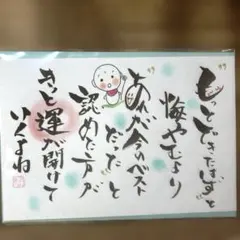 "もっとできたはず"と
悔やむより
"あれが今のベスト
だった"と
認めた方が
きっと運が開けて
いくよね